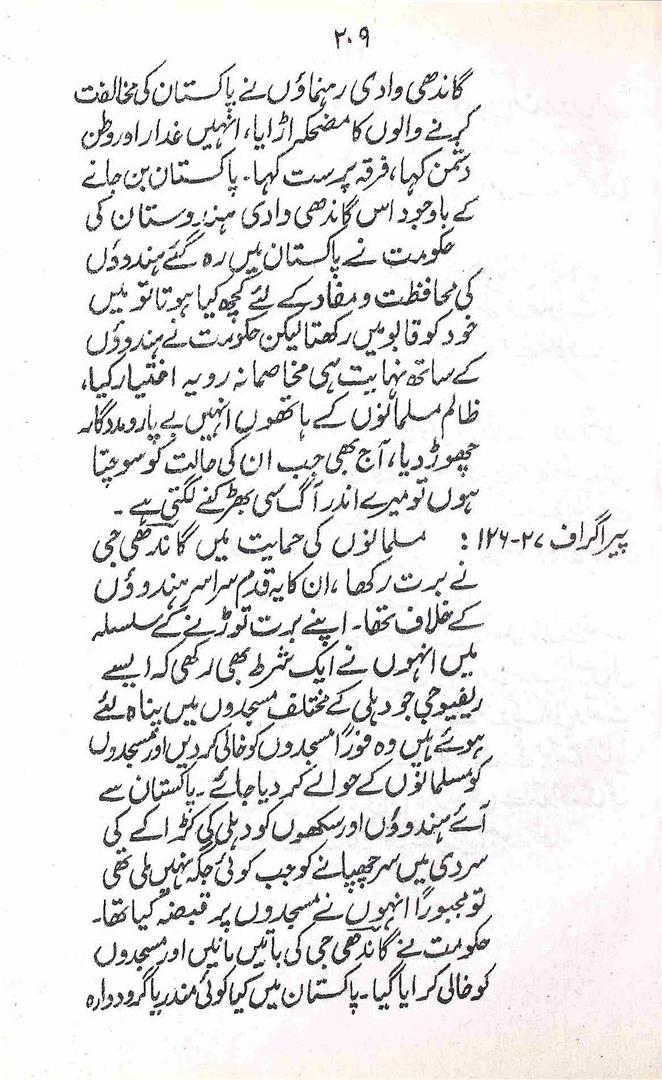 ۲۰۹
گاندھی وادی رہنماؤں نے پاکستان کی مخالفت
کرنے والوں کا مضحکہ اڑایا، انہیں غدار اور وطن
دشمن کہا، فرقہ پرست کہا۔ پاکستان بن جانے
کے باوجود اس گاندھی وادی ہندوستان کی
حکومت نے پاکستان میں رہ گئے ہندوؤں
کی محافظت و مفاد کے لئے کچھ کیا ہوتا تو میں
خود کو قابو میں رکھتا لیکن حکومت نے ہندوؤں
کے ساتھ نہایت ہی مخاصمانہ رویہ اختیار کیا،
ظالم مسلمانوں کے ہاتھوں انہیں بے یار و مددگار
چھوڑ دیا، آج بھی جب ان کی حالت کو سوچتا
ہوں تو میرے اندر آگ سی بھڑکنے لگتی ہے۔
پیراگراف ۲۷-۱۲۶: مسلمانوں کی حمایت میں گاندھی جی
نے برت رکھا، ان کا یہ قدم سراسر ہندوؤں
کے خلاف تھا۔ اپنے برت توڑنے کے سلسلہ
میں انہوں نے ایک شرط بھی رکھی کہ ایسے
ریفیوجی جو دہلی کے مختلف مسجدوں میں پناہ لئے
ہوئے ہیں وہ فوراً مسجدوں کو خالی کر دیں اور مسجدوں
کو مسلمانوں کے حوالے کر دیا جائے۔ پاکستان سے
آئے ہندوؤں اور سکھوں کو دہلی کی کڑاکے کی
سردی میں سر چھپانے کو جب کوئی جگہ نہیں ملی تھی
تو مجبوراً انہوں نے مسجدوں پر قبضہ کیا تھا۔
حکومت نے گاندھی جی کی باتیں مانیں اور مسجدوں
کو خالی کرایا گیا۔ پاکستان میں کیا کوئی مندر یا گرودوارہ